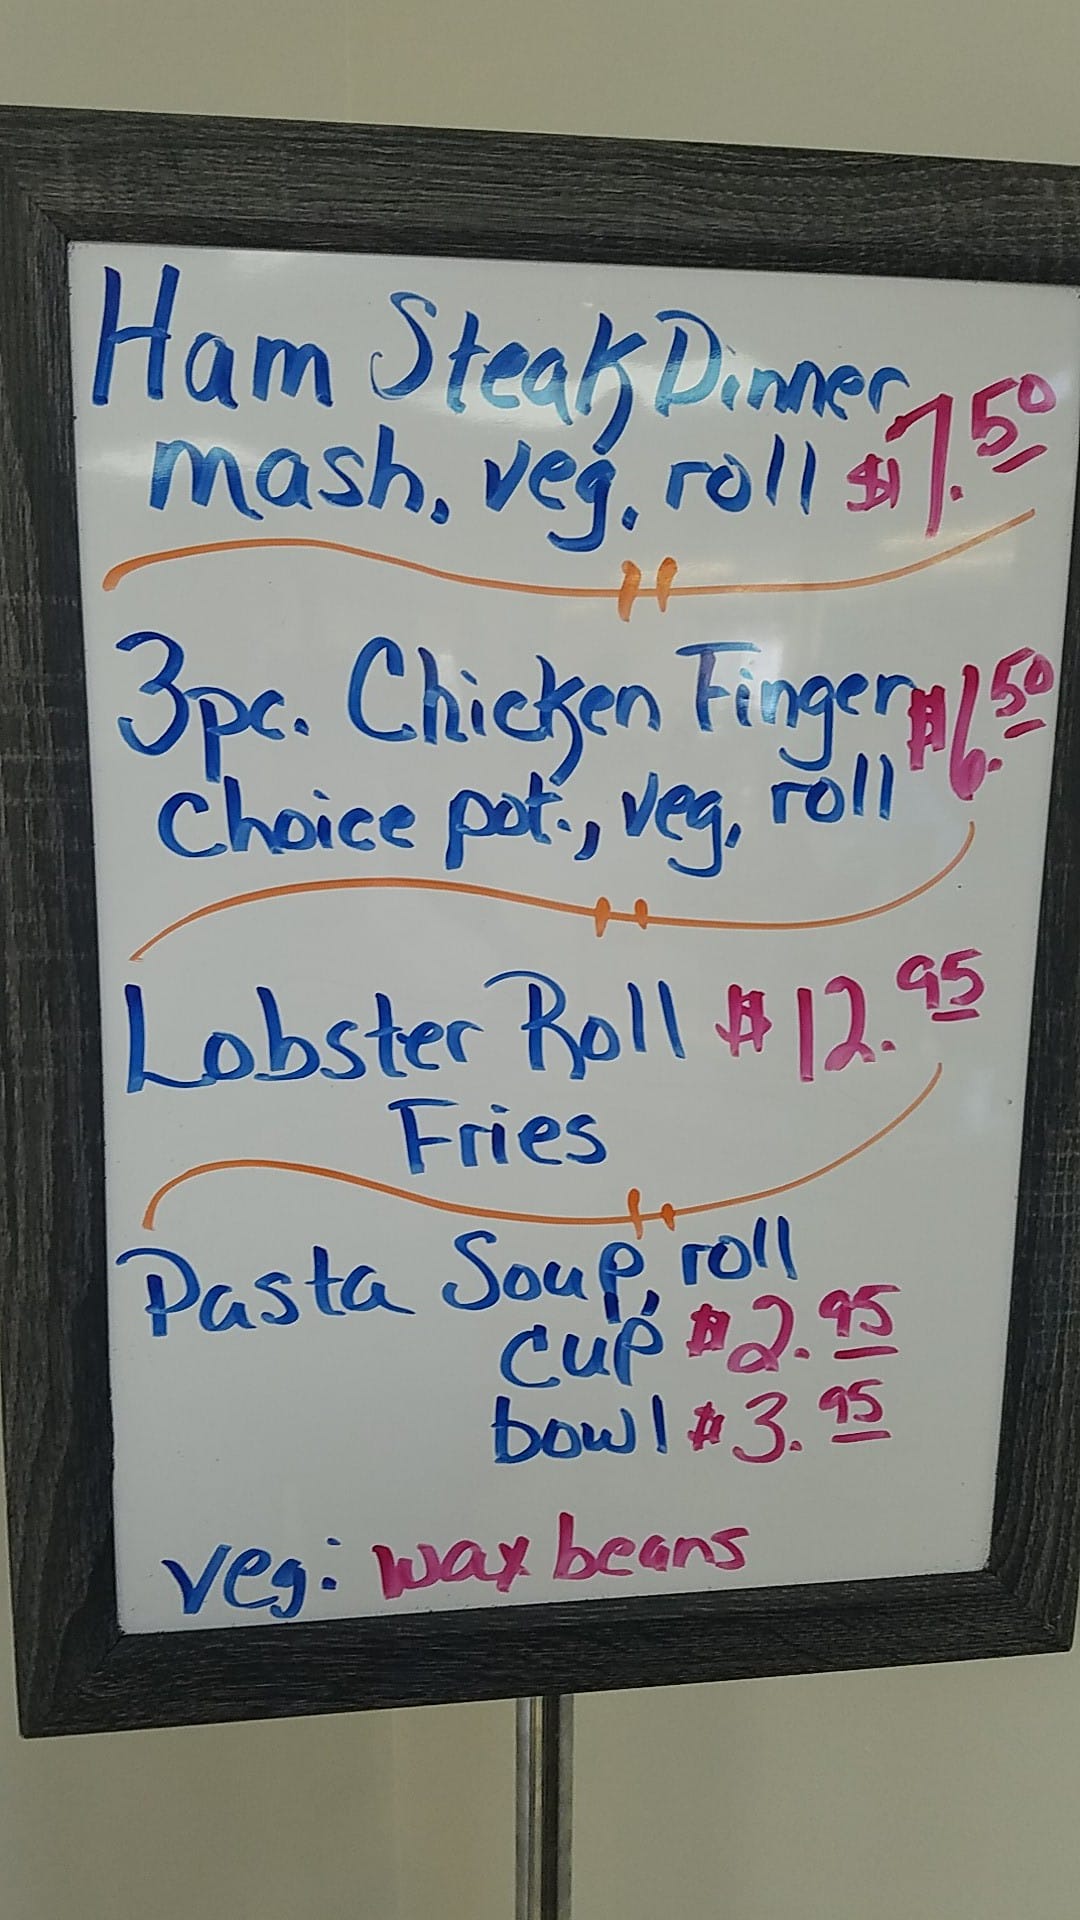 Ham Steak Dinner
mash, veg, roll $7.50
3pc. Chicken Finger $6.50
choice pot., veg, roll
Lobster Roll $12.95
Fries
Pasta Soup, roll
cup $2.95
bowl $3.95
veg: wax beans